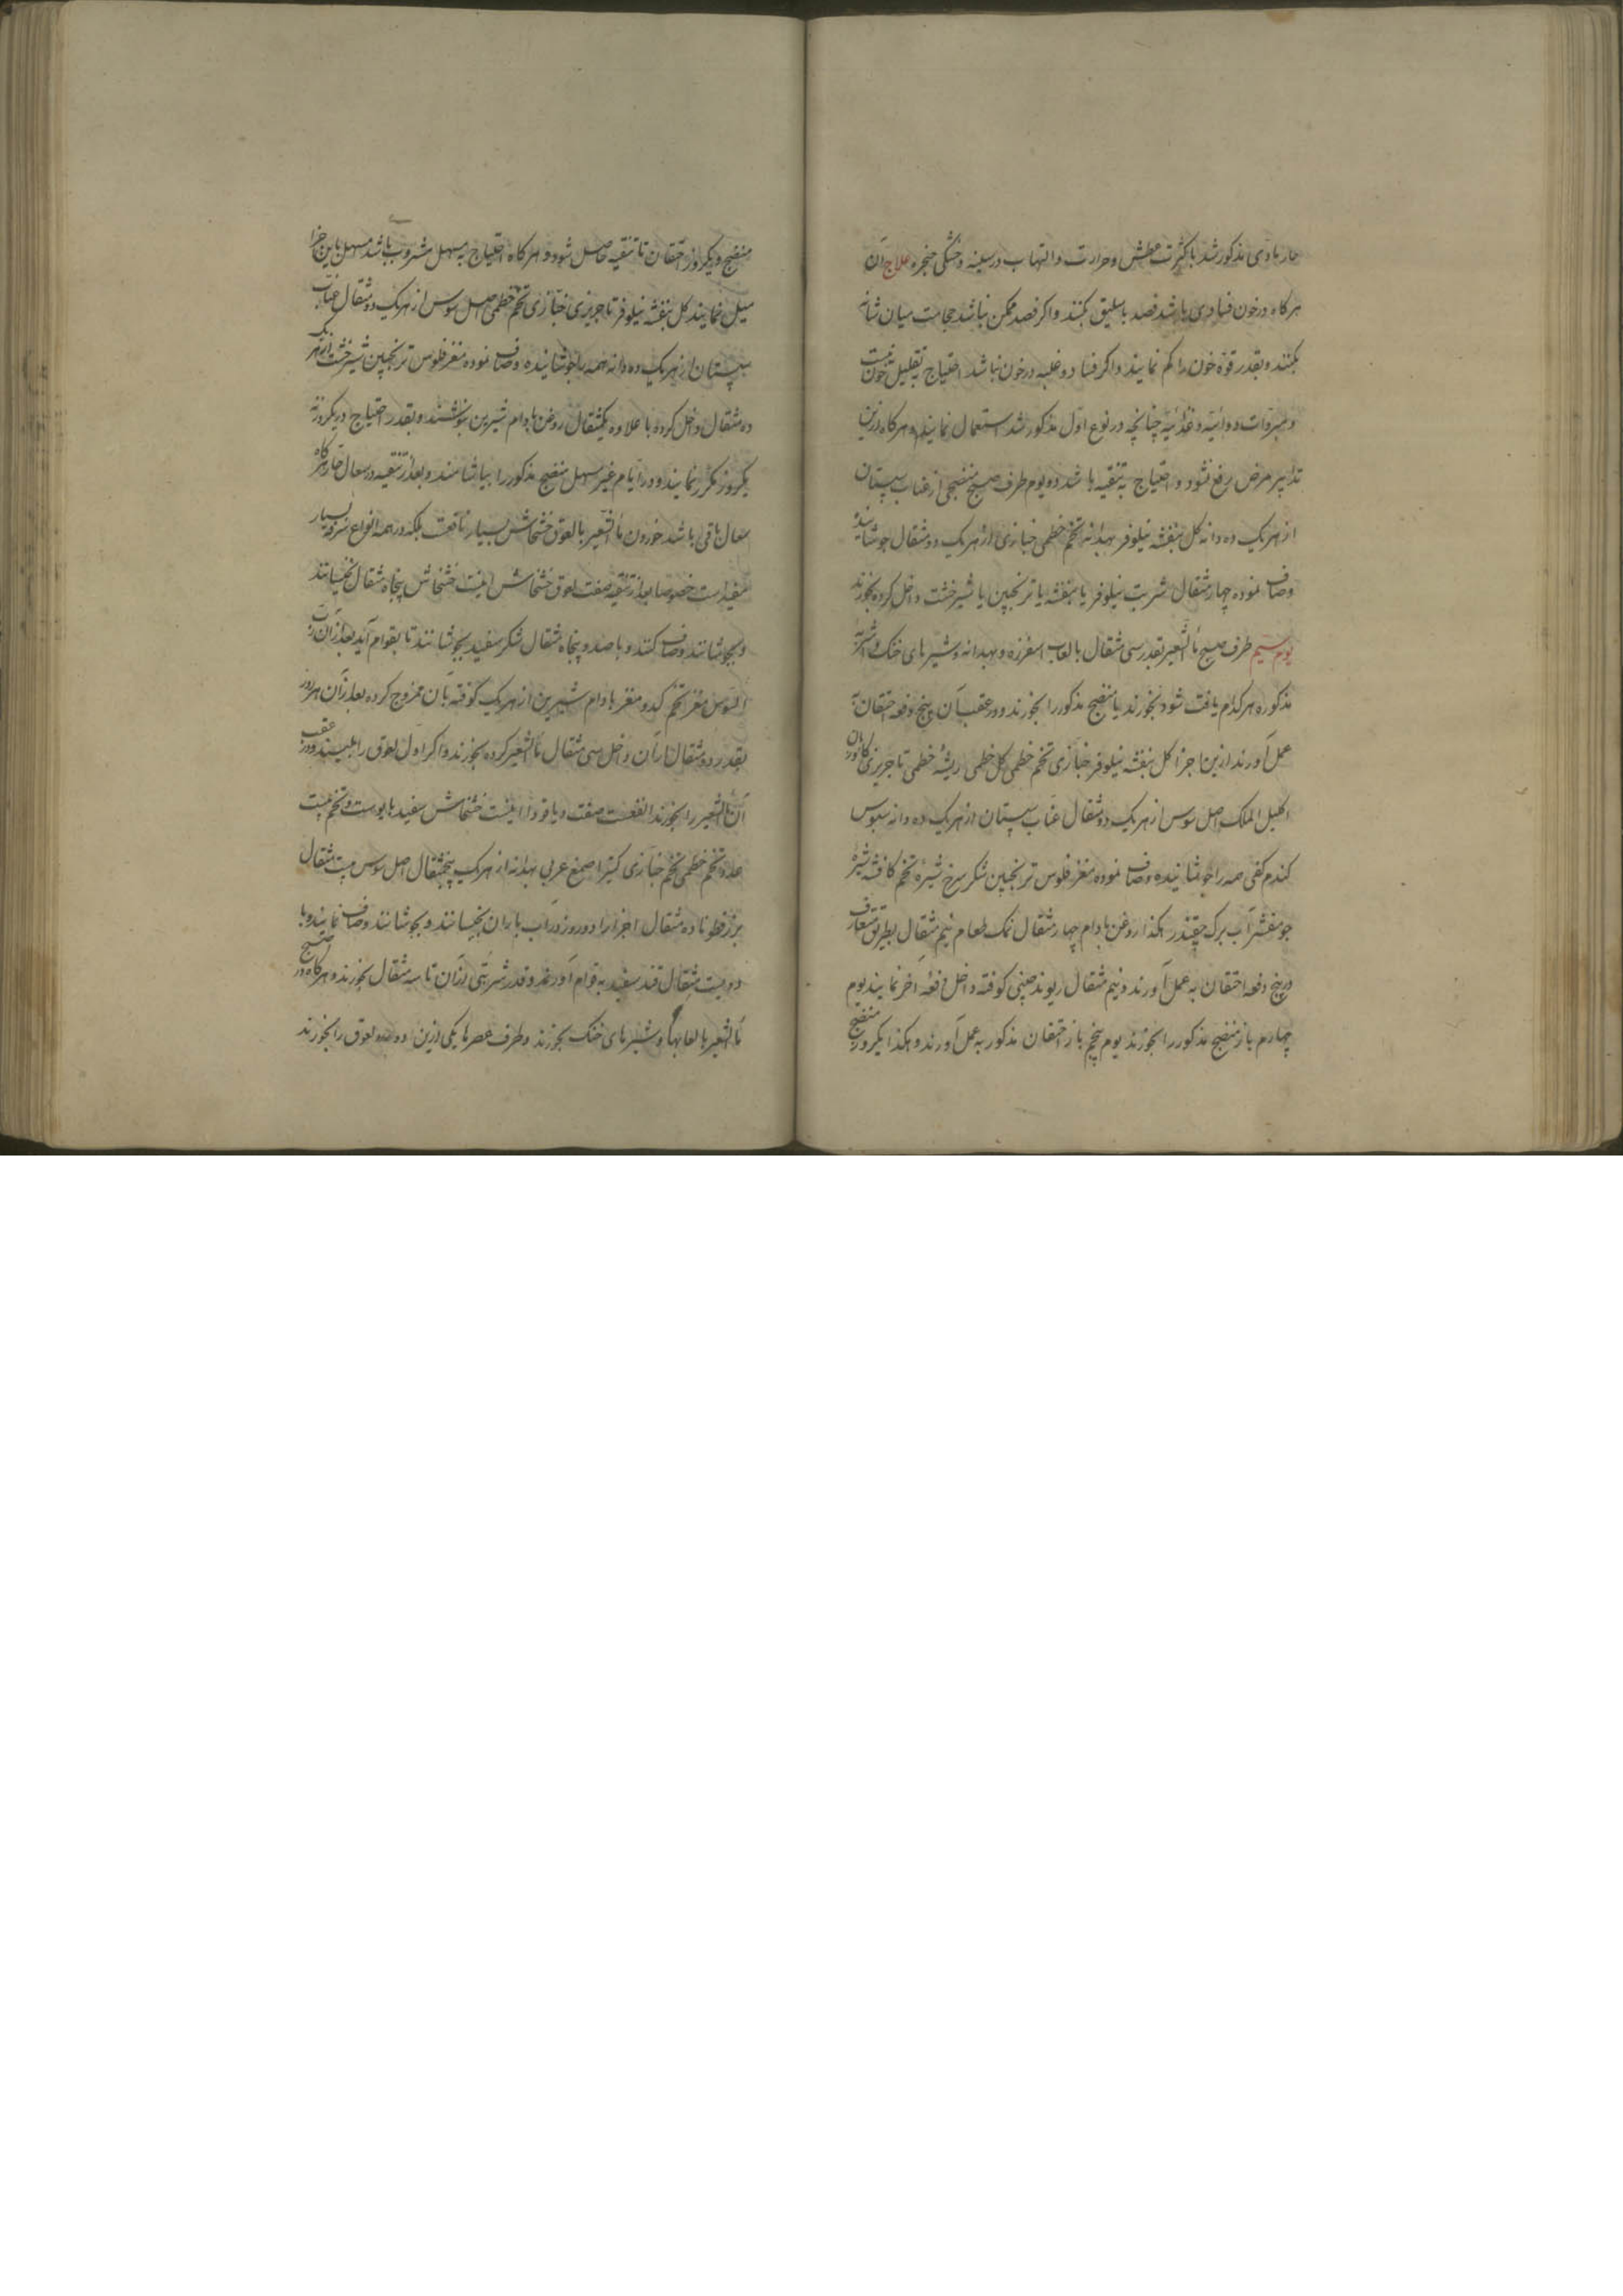 حار مادی مذکور شد با کثرت عطش و حرارت و التهاب در سینه و خشکی حنجره علاج آن
هرکاه در خون فسادی باشد فصد باسلیق بکنند و اکر فصد ممکن نباشد حجامت میان شانه
بکنند و بقدر قوة خون را کم نمایند و اکر فساد و غلبه در خون نباشد احتیاج به تقلیل خون نیست
و مبردات دوائیه و غذائیه چنانچه در نوع اول مذکور شد استعمال نمایند و هرکاه ازین
تدابیر مرض رفع نشود و احتیاج به تنقیه باشد دو یوم طرف صبح منضجی از عناب سپستان
از هریک ده دانه کل بنفشه نیلوفر بهدانه تخم خطمی خبازی از هریک دو مثقال جوشانیده
وصاف نموده چهار مثقال شربت نیلوفر یا بنفشه یا ترنجبین یا شیرخشت داخل کرده بخورند
یوم سیم طرف صبح مأالشعیر بقدر سی مثقال با لعاب اسفرزه و بهدانه و شیرهای خنک و اشربه
مذکوره هرکدام یافت شود بخورند یا منضج مذکور را بخورند و در عقب آن پنج دفعه احتقان به
عمل آورند ازین اجزا کل بنفشه نیلوفر خبازی تخم خطمی کل خطمی ریشه خطمی تاجریزی
اکلیل الملک اصل سوس از هریک دو مثقال عناب سپستان از هریک ده دانه سبوس
کندم کفی همه را جوشانیده وصاف نموده مغز فلوس ترنجبین شکر سرخ شیره تخم کافشه شیره
جو مقشر آب برک چقندر هکذا روغن بادام چهار مثقال نمک طعام نیم مثقال بطریق متعارف
در پنج دفعه احتقان به عمل آورند و نیم مثقال ریوند چینی کوفته داخل دفعه آخر نمایند یوم
چهارم باز منضج مذکور را بخورند یوم پنجم باز احتقان مذکور به عمل آورند و هکذا یکروز منضج
منضج و یکروز احتقان تا تنقیه حاصل شود و هرکاه احتیاج به مسهل مشروب باشد مسهل باین اجزا
میل نمایند کل بنفشه نیلوفر تاجریزی خبازی تخم خطمی اصل سوس از هریک دو مثقال عناب
سپستان از هریک ده دانه همه را جوشانیده وصاف نموده مغز فلوس ترنجبین شیرخشت از هریک
ده مثقال داخل کرده با علاوه یکمثقال روغن بادام شیرین بنوشند و بقدر احتیاج
یکروز مکرر نمایند و در ایام غیر مسهل منضج مذکور را بیاشامند و بعد از تنقیه در سعال حار هرکاه
سعال باقی باشد خوردن مأالشعیر با لعوق خشخاش بسیار نافعست بلکه در همه انواع سرفه بسیار
مفید است خصوصا بعد از تنقیه صفت لعوق خشخاش اینست خشخاش پنجاه مثقال بخیسانند
و بجوشانند وصاف کنند و با صد و پنجاه مثقال شکر سفید بجوشانند تا بقوام آید بعد از آن رب
السوس مغز تخم کدو مغز بادام شیرین از هریک کوفته بآن ممزوج کرده بعد از آن هر روز
بقدر دو مثقال از آن داخل سی مثقال مأالشعیر کرده بخورند و اکر اول لعوق را بلیسند و در عقب
آن مأالشعیر را بخورند انفعست صفت دیاقودا اینست خشخاش سفید با پوست و تخم بیست
عدد تخم خطمی تخم خبازی کتیرا صمغ عربی بهدانه از هریک پنجمثقال اصل سوس بیست مثقال
بزرقطونا ده مثقال اجزا را دو روز در آب باران بخیسانند و بجوشانند وصاف نمایند و با
دویست مثقال قند سفید به قوام آورند و قدر شربتی از آن تا سه مثقال بخورند و هرکاه در صبح
مأالشعیر با لعابها و شیرهای خنک بخورند و طرف عصرها یکی ازین دو لعوق را بخورند